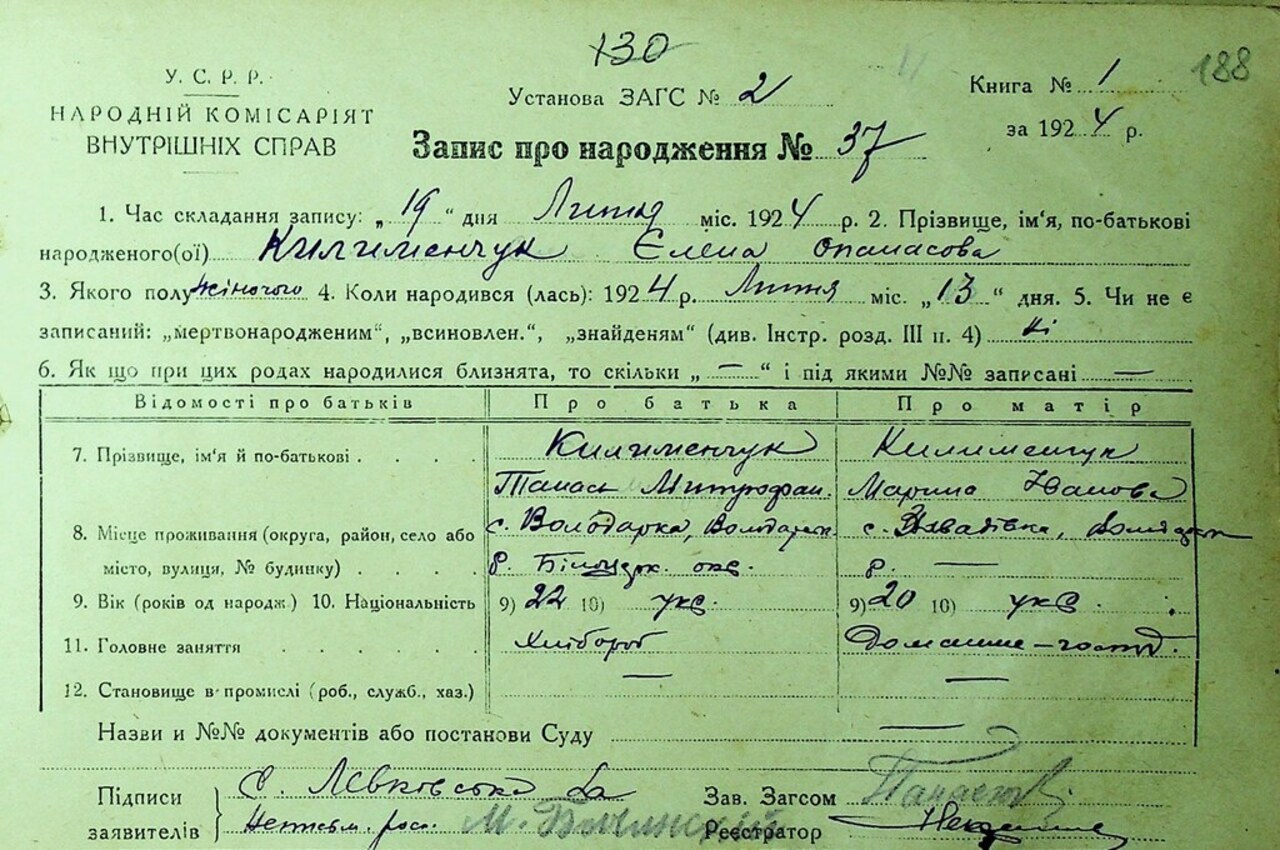 130
188
У. С. Р. Р.
НАРОДНІЙ КОМІСАРІЯТ
ВНУТРІШНІХ СПРАВ
Установа ЗАГС № 2
Книга № 1
за 1924 р.
Запис про народження № 37
1. Час складання запису: „19“ дня Липня міс. 1924 р. 2. Прізвище, ім‘я, по-батькові
народженого(ої) Килименчук Єлена Опанасова
3. Якого полу жіночого 4. Коли народився (лась): 1924 р. Липня міс. „13“ дня. 5. Чи не є
записаний: „мертвонародженим“, „всиновлен.“, „знайденям“ (див. Інстр. розд. III п. 4) Ні
6. Як що при цих родах народилися близнята, то скільки „—“ і під якими №№ записані —
Відомості про батьків Про батька Про матір
7. Прізвище, ім‘я й по-батькові . . . . Килименчук Килименчук
Панас Митрофан. Марина Іванова
8. Місце проживання (округа, район, село або с. Володарка, Володарськ. с. Завадівка,
місто, вулиця, № будинку) . . . . р. Білоцерк. окр. р. —
9. Вік (років од народж.) 10. Національність 9) 22 10) укр. 9) 20 10) укр.
11. Головне заняття . . . . . . Хлібороб Домашнє-госпд.
12. Становище в промислі (роб., служб., хаз.) — —
Назви и №№ документів або постанови Суду —
Підписи Левковська Зав. Загсом
заявителів Реєстратор